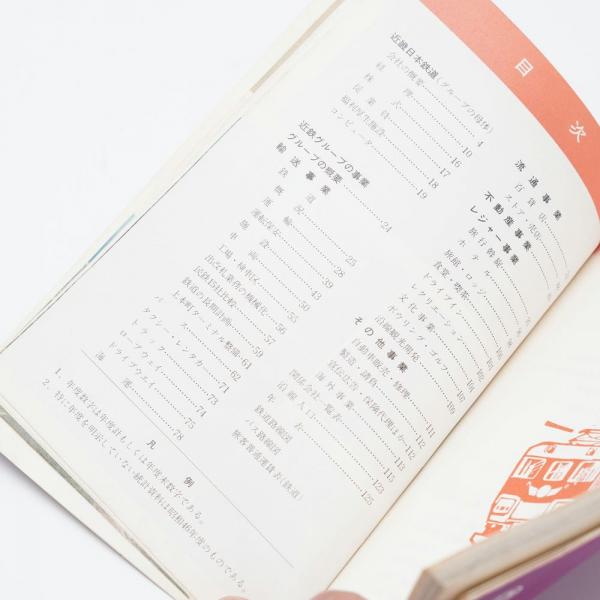 目次
近畿日本鉄道(グループの母体)
会社の概要 4
経理 10
株式 16
従業員 17
福利厚生施設 18
コンピューター 19
近鉄グループの事業
グループの概要 24
輸送事業
鉄道
概況 25
運輸 28
運転保安 39
車両 43
施設 50
工場・検車区 55
出改札業務の機械化 56
民鉄15社比較 57
鉄道の長期計画 59
上本町ターミナル整備 61
バス 62
タクシー・レンタカー 71
トラック 73
ロープウェイ 74
ドライブウェイ 75
海運 78
流通事業
百貨店
ストア・売店
不動産事業
レジャー事業
旅行斡旋
ホテル
旅館・ロッジ
食堂・喫茶
ドライブイン
レクリエーション
ボウリング・ゴルフ
文化事業
沿線観光開発
その他事業
自動車販売・修理
製造・請負
宣伝広告・保険代理ほか
海外事業
関係会社一覧表
沿線人口
年表
鉄道路線図
バス路線図
旅客普通運賃表(鉄道)
凡例
1. 年度数字は年度計もしくは年度末数字である。
2. 特に年度を明示していない統計資料は昭和46年度のものである。